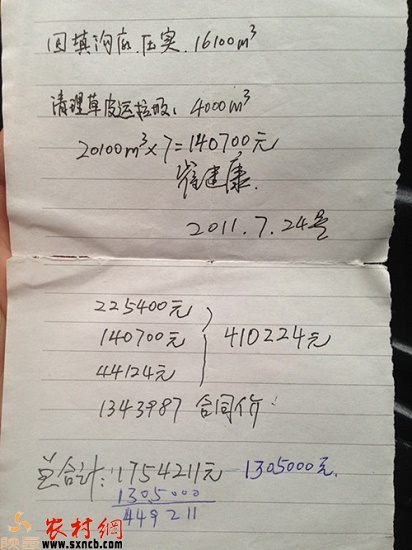 回填沟底.压实.16100m³
清理草皮运垃圾:4000m³
20100m³×7=140700元
健康.
2011.7.24号
225400元
140700元 410224元
44124元
1343987 合同价:
总合计:1754211元 1305000元.
1305000
449211
农村網
www.sxncb.com